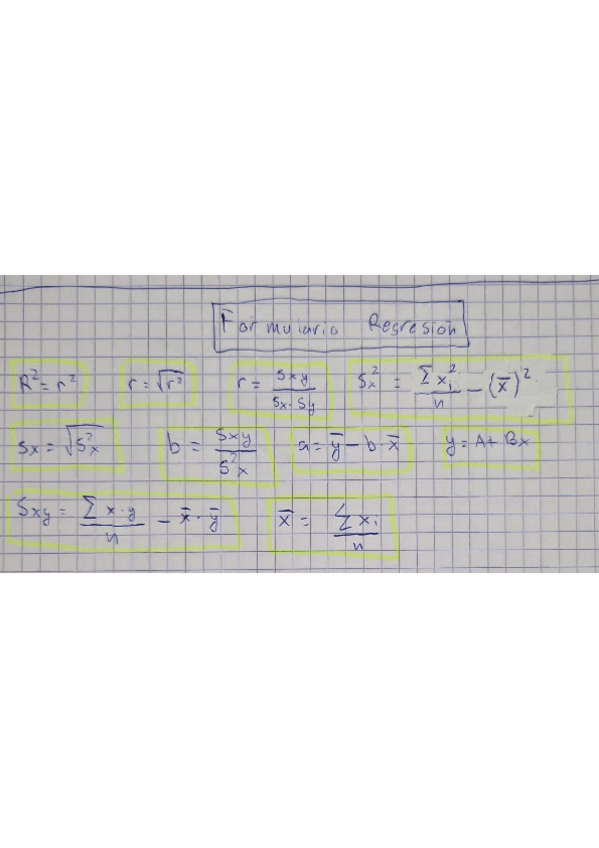 Formulario Regresión
R² = r² r = √r² r = Sxy / Sx·Sy Sx² = Σxi² / n − (x̄)²
Sx = √Sx² b = Sxy / S²x a = ȳ − b·x̄ y = A + Bx
Sxy = Σx·y / n − x̄·ȳ x̄ = Σxi / n